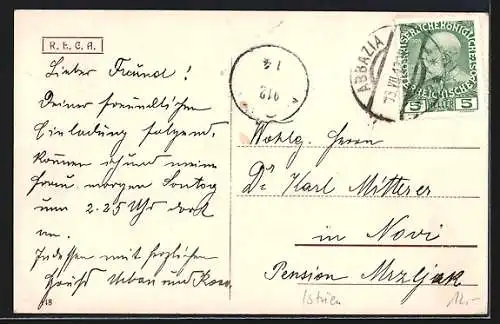 R. E. C. A.
Lieber Freund!
Deiner freundlichen
Einladung folgend,
kommen ich und meine
Frau morgen Sontag
um 2.25 Uhr dort
an.
Indessen mit herzlichen
Grüßen Urban und
18
912
ABBAZIA
KAISERLICHE KÖNIGLICHE
5 HELLER 5
Wohlg. Herrn
Dr Karl Mitterer
in Novi
Pension Mrzljak
Istrien
12,-